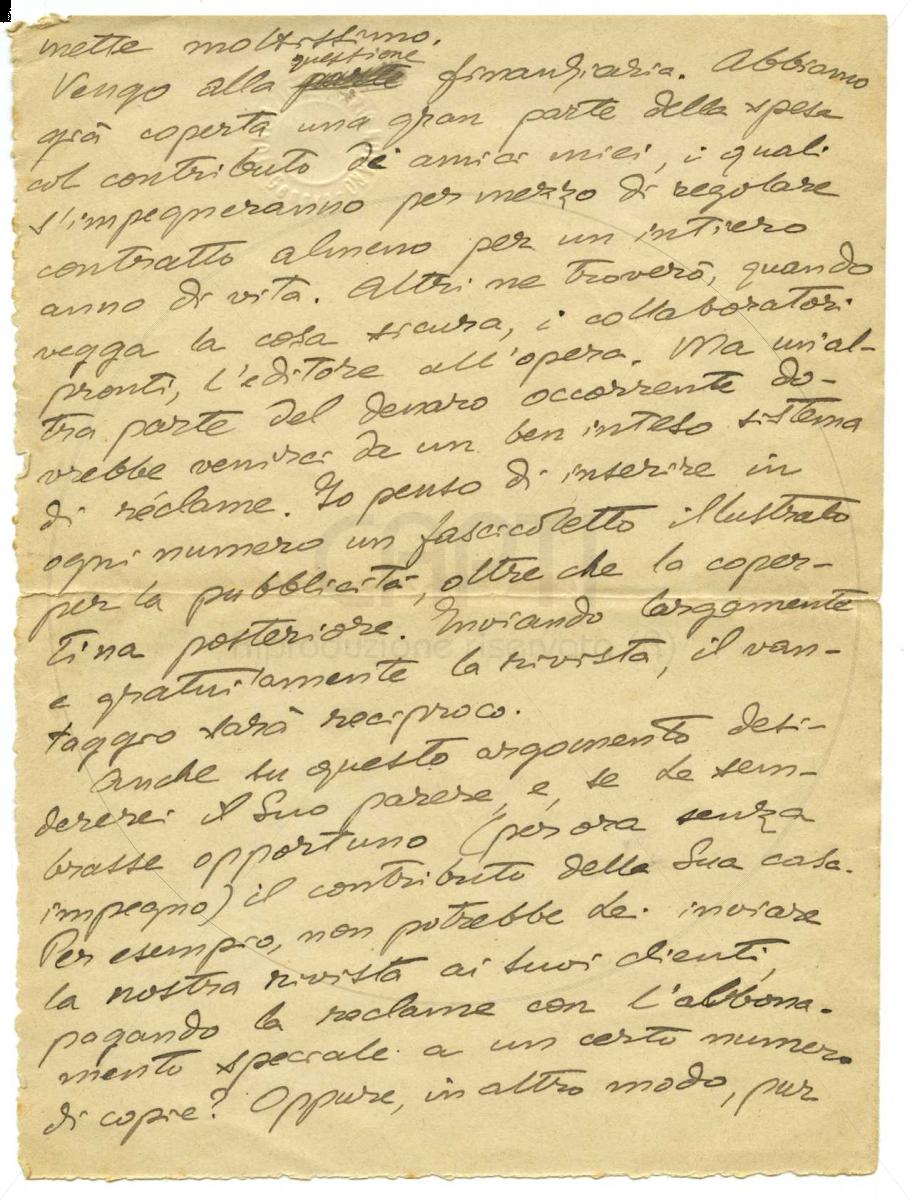 mette moltissimo.
questione
Vengo alla finanziaria. Abbiamo
già coperta una gran parte della spesa
col contributo di amici miei, i quali
s'impegneranno per mezzo di regolare
contratto almeno per un intiero
anno di vita. Altri ne troverò, quando
vegga la cosa sicura, i collaboratori
pronti, l'editore all'opera. Ma un'al-
tra parte del denaro occorrente do-
vrebbe venirci da un ben inteso sistema
di réclame. Io penso di inserire in
ogni numero un fascicoletto illustrato
per la pubblicità, oltre che la coper-
tina posteriore. Inviando largamente
e gratuitamente la rivista, il van-
taggio sarà reciproco.
Anche su questo argomento desi-
dererei il Suo parere, e, se Le sem-
brasse opportuno (per ora senza
impegno) il contributo della Sua casa.
Per esempio, non potrebbe Lei inviare
la nostra rivista ai suoi clienti,
pagando la reclame con l'abbona-
mento speciale a un certo numero
di copie? Oppure, in altro modo, pur
riproduzione riservata